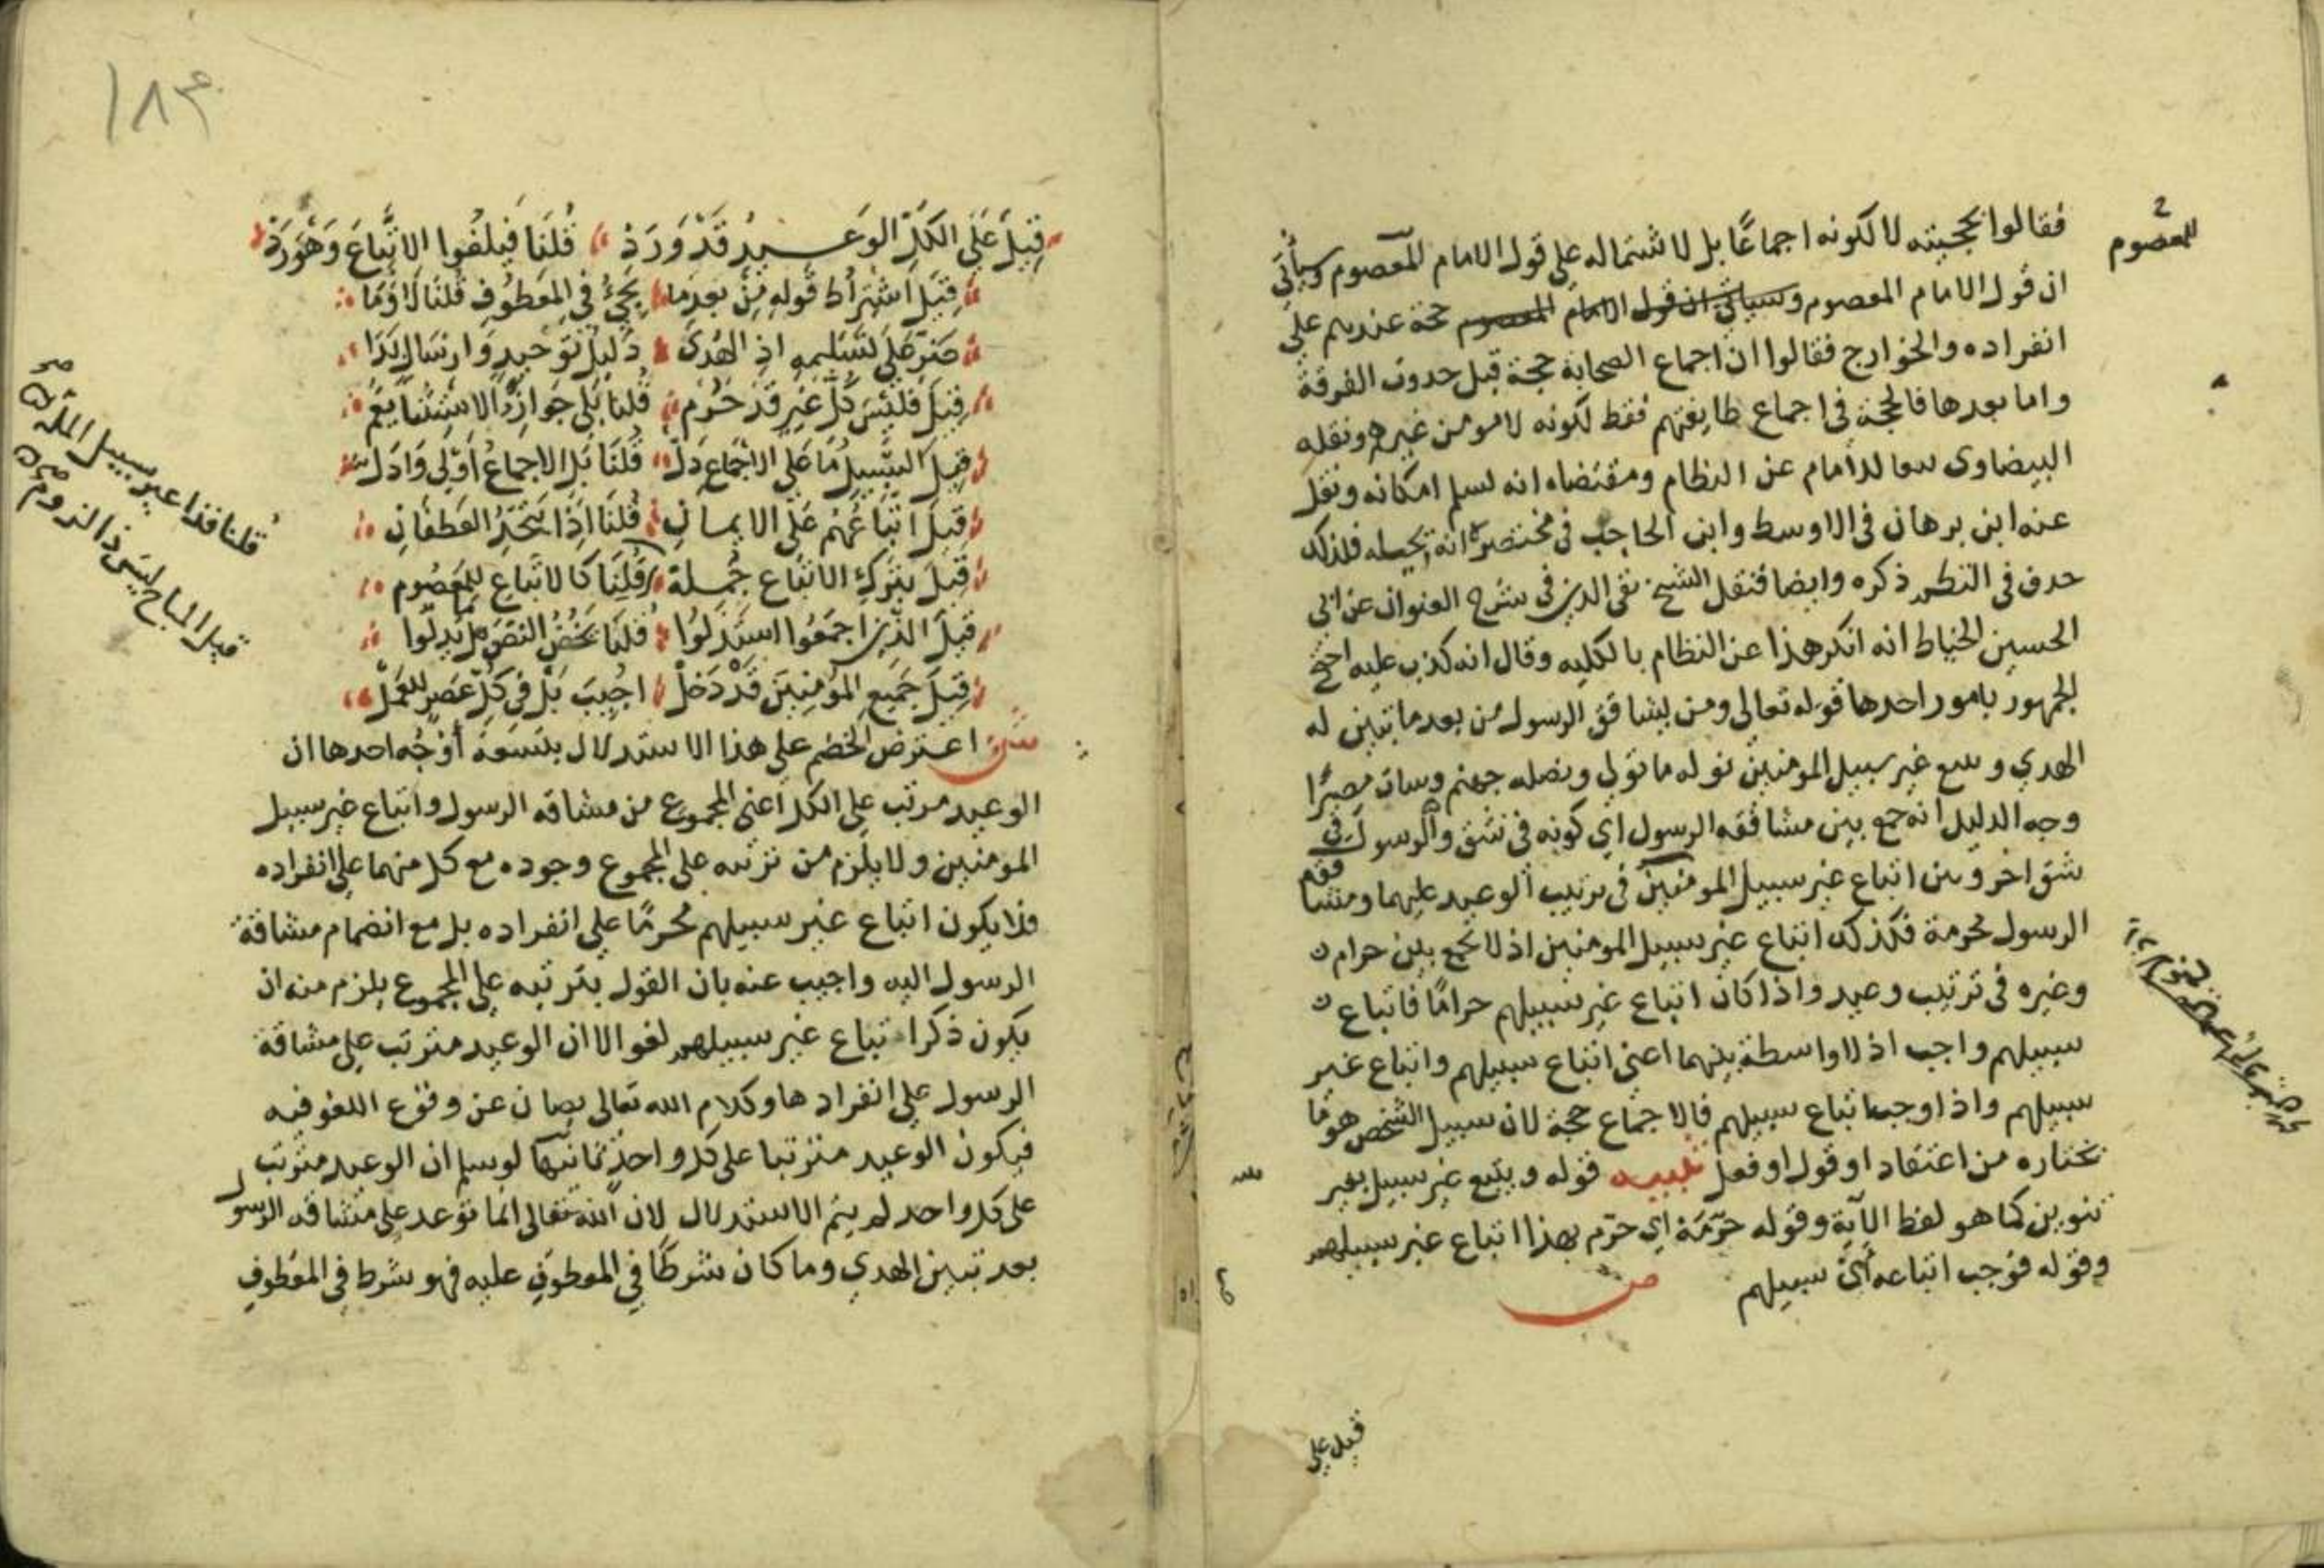 فقالوا بحجيته لا لكونه اجماعًا بل لاشتماله على قول الامام المعصوم وسيأتي
ان قول الامام المعصوم وسيأتي ان قول الامام المعصوم حجة عندهم على
انفراده والخوارج فقالوا ان اجماع الصحابة حجة قبل حدوث الفرقة
واما بعدها فالحجة في اجماع طايفتهم فقط لكونه لا مومن غيرهم ونقله
البيضاوي تبعا للامام عن النظام ومقتضاه انه يسلم امكانه ونقل
عنه ابن برهان في الاوسط وابن الحاجب في مختصره انه يحيله فلذلك
حدف في النظم ذكره وايضا فنقل الشيخ تقي الدين في شرح العنوان عن ابي
الحسين الخياط انه انكر هذا عن النظام بالكليه وقال انه كذب عليه احتج
الجمهور بامور احدها قوله تعالى ومن يشاقق الرسول من بعد ما تبين له
الهدي ويتبع غير سبيل المومنين نوله ما تولي ونصله جهنم وسات مصيرًا
وجه الدليل انه جمع بين مشاققه الرسول اي كونه في شق والرسول في
شق اخر وبين اتباع غير سبيل المومنين في ترتيب الوعيد عليهما ومشاققه
الرسول محرمة فكذلك اتباع غير سبيل المومنين اذ لا يجمع بين حرام
وغيره في ترتيب وعيد واذا كان اتباع غير سبيلهم حرامًا فاتباع
سبيلهم واجب اذ لا واسطة بينهما اعني اتباع سبيلهم واتباع غير
سبيلهم واذا وجب اتباع سبيلهم فالاجماع حجة لان سبيل الشخص هو ما
يختاره من اعتقاد او قول او فعل تنبيه قوله ويتبع غير سبيل بغير
تنوين كما هو لفظ الآية وقوله حرّمَهْ اي حرّم بهذا اتباع غير سبيلهم
وقوله فوجب اتباعه أي سبيلهم
ص
قيل على
للمعصوم
قيلَ عَلَى الكلِّ الوَعيدُ قَدْ وَرَدْ قُلنَا فَيلغُوا الاتّباعَ وَهْوَ رَدْ
قِيلَ اشْتِراطُ قَولِهِ مِنْ بعدِ مَا يَجيُ في المعطُوفِ قُلنَا لَا وَمَا
ضَرّ عَلى تَسليمهِ اذِ الهُدَى دَليلُ تَوحيدٍ وَارسَالٍ بَدَا
قِيلَ فَليْسَ كلُّ غيرٍ قَد حَرُم قُلنَا بَلَى جَوازُ الاستثنا يَعُمّ
قِيلَ السَّبيلُ مَا عَلى الاجْماعِ دَلّ قُلنَا بَلِ الاجماعُ أَوْلَى وَادَلّ
قِيلَ اتّبَاعُهُمْ عَلى الايمانِ قُلنَا اذَا يَتّحِدُ العَطفَانِ
قِيلَ بتركِ الاتباعِ جُملة قُلنَا كالاتباعِ للمعصُوم
قِيلَ الذينَ اجمَعُوا استَدَلُوا قُلنَا يَخُصُّ النَّصَ بل يَدِلّوا
قِيلَ جَميعُ المؤمِنِينَ قَدْ دَخَلْ اجُيبَ بَلْ في كلِّ عَصرٍ للعَمَلْ
ش اعترض الخصم على هذا الاستدلال بتسعة أوْجُه احدها ان
الوعيد مرتب على الكل اعني المجموع من مشاقه الرسول واتباع غير سبيل
المومنين ولا يلزم من ترتبه على المجموع وجوده مع كل منهما على انفراده
فلا يكون اتباع غير سبيلهم محرمًا على انفراده بل مع انضمام مشاقة
الرسول اليه واجيب عنه بان القول بترتبه على المجموع يلزم منه ان
يكون ذكر اتباع غير سبيلهم لغوا لان الوعيد مترتب على مشاقة
الرسول على انفرادها وكلام الله تعالى يصان عن وقوع اللغو فيه
فيكون الوعيد مترتبا على كل واحد ثانيها لو سلم ان الوعيد مترتب
على كل واحد لم يتم الاستدلال لان الله تعالى انما توعد على مشاقه الرسول
بعد تبين الهدي وما كان شرطًا في المعطوف عليه فهو شرط في المعطوف
قلنا فذا غير سبيل المله
قيل المباح ليس ذا لزوم
١٨٣